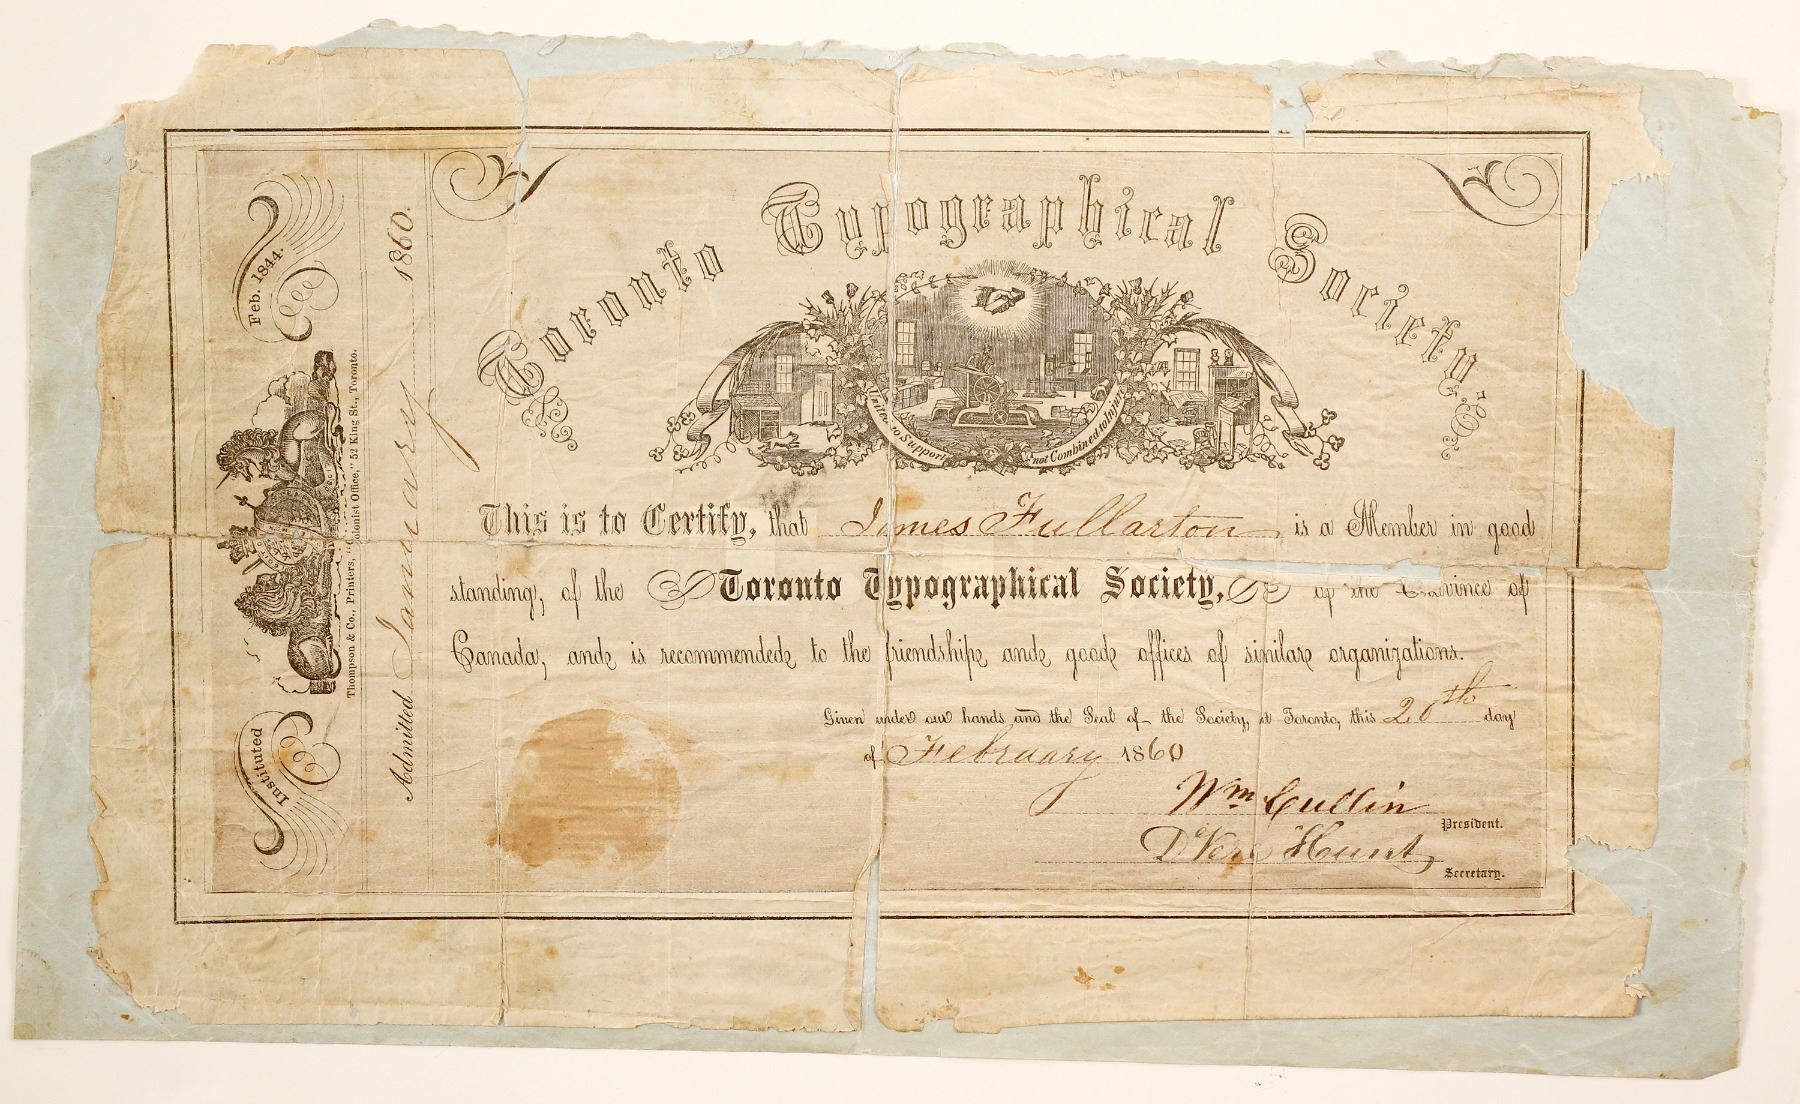 Toronto Typographical Society.
United to Support not Combined to Injure
This is to Certify, that James Fullarton is a Member in good
standing, of the Toronto Typographical Society, of the Province of
Canada, and is recommended to the friendship and good offices of similar organizations.
Given under our hands and the Seal of the Society, at Toronto, this 20th day
of February 1860
Wm Cullin
President.
De Vere Hunt
Secretary.
Instituted Feb. 1844.
Thompson & Co., Printers, "Colonist Office," 52 King St., Toronto.
Admitted January 1860.